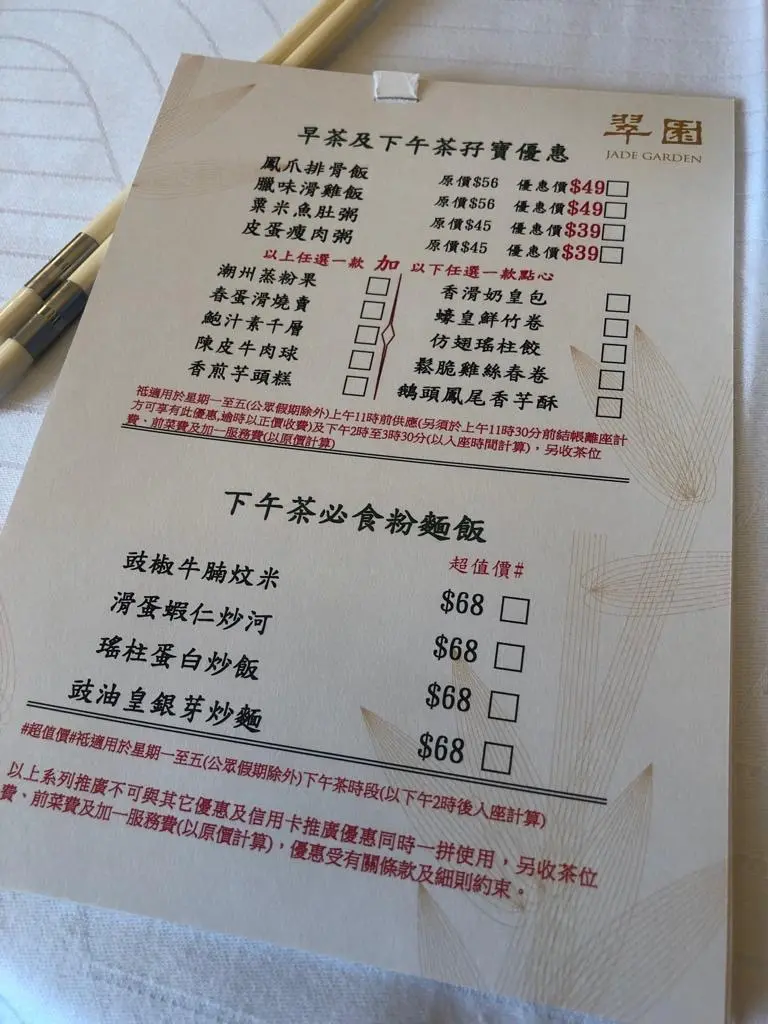 翠園
JADE GARDEN
早茶及下午茶孖寶優惠
鳳爪排骨飯 原價$56 優惠價$49
臘味滑雞飯 原價$56 優惠價$49
粟米魚肚粥 原價$45 優惠價$39
皮蛋瘦肉粥 原價$45 優惠價$39
以上任選一款 加 以下任選一款點心
潮州蒸粉果
春蛋滑燒賣
鮑汁素千層
陳皮牛肉球
香煎芋頭糕
香滑奶皇包
蠔皇鮮竹卷
仿翅瑤柱餃
鬆脆雞絲春卷
鵝頭鳳尾香芋酥
祗適用於星期一至五(公眾假期除外)上午11時前供應(另須於上午11時30分前結帳離座計
方可享有此優惠,逾時以正價收費)及下午2時至3時30分(以入座時間計算)，另收茶位
費、前菜費及加一服務費(以原價計算)
下午茶必食粉麵飯
超值價#
豉椒牛腩炆米 $68
滑蛋蝦仁炒河 $68
瑤柱蛋白炒飯 $68
豉油皇銀芽炒麵 $68
#超值價#祗適用於星期一至五(公眾假期除外)下午茶時段(以下午2時後入座計算)
以上系列推廣不可與其它優惠及信用卡推廣優惠同時一拼使用，另收茶位
費、前菜費及加一服務費(以原價計算)，優惠受有關條款及細則約束。